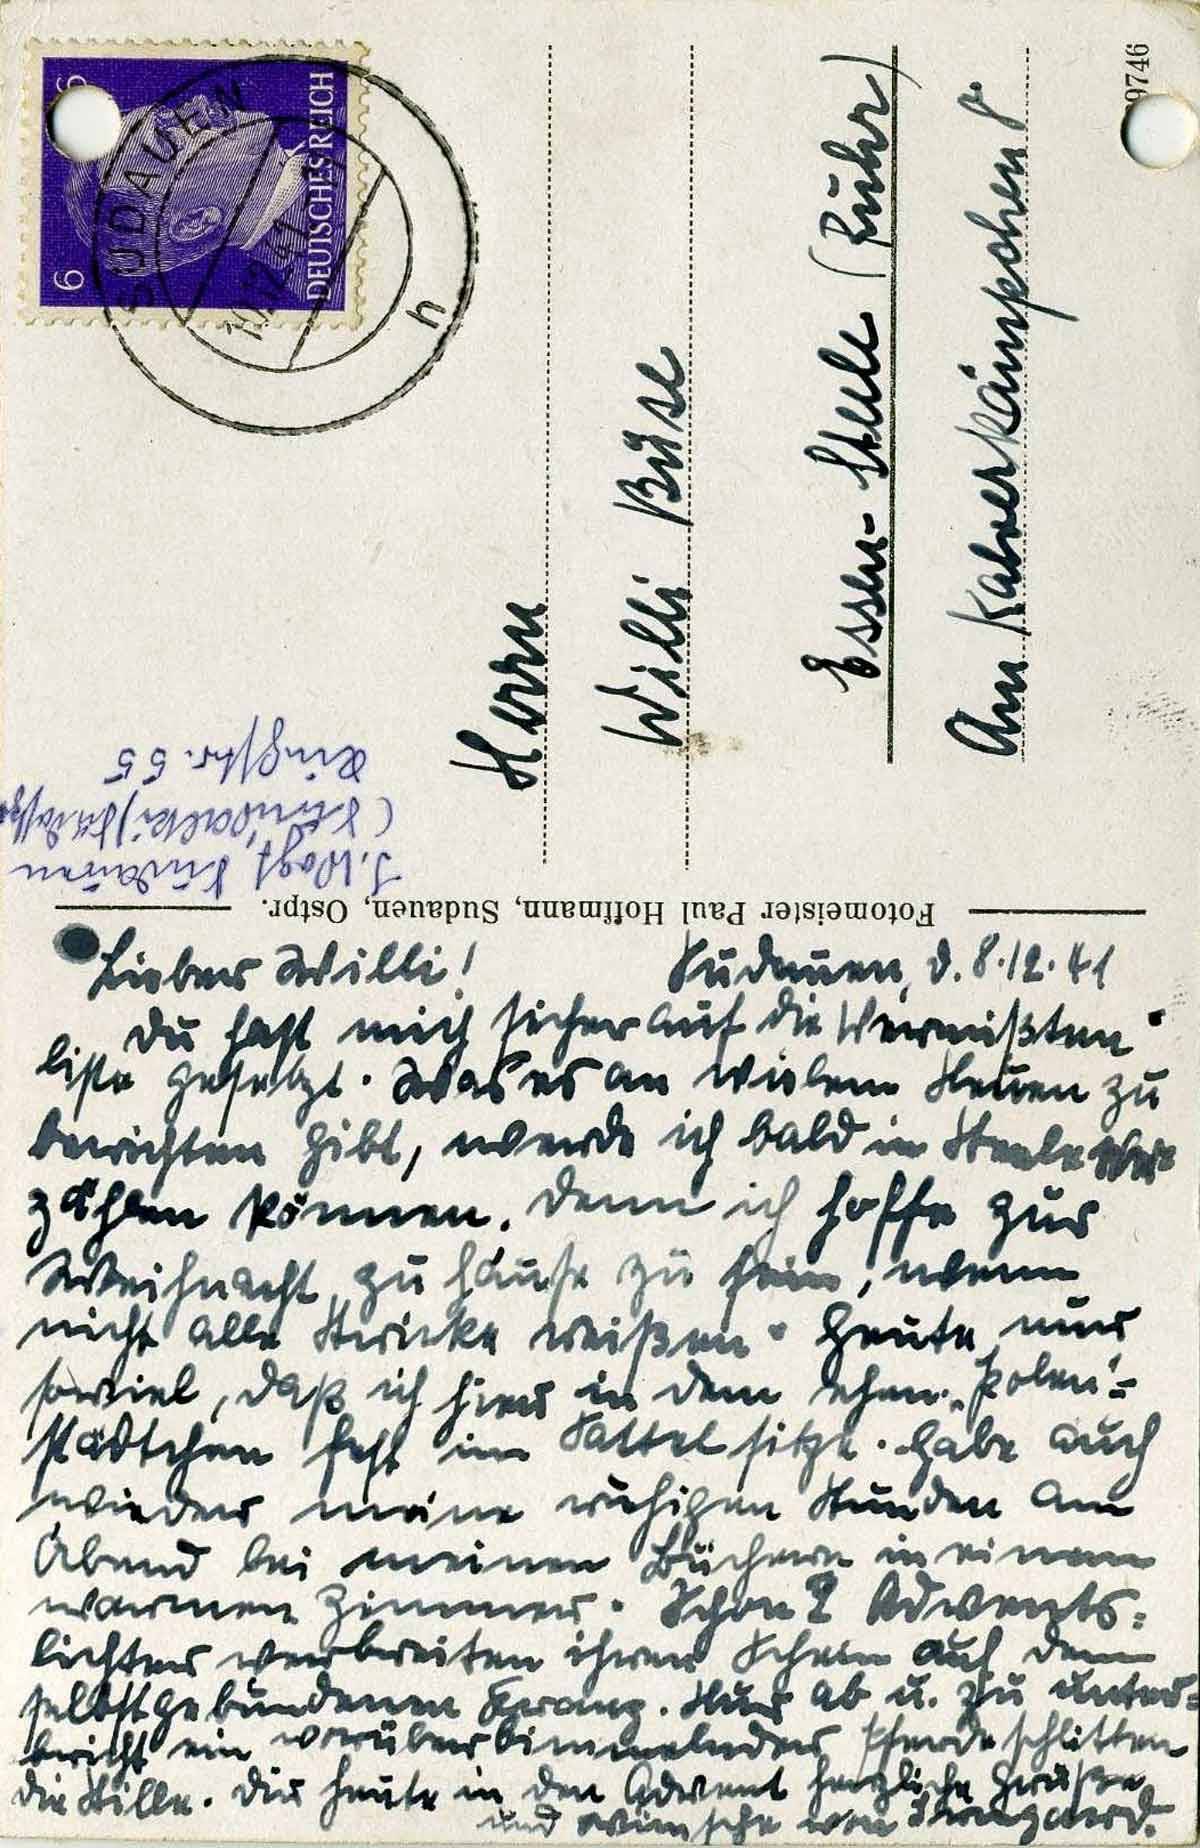 6
6
DEUTSCHES REICH
SUDAUEN
12.41
h
9746
Herrn
Willi Büse
Essen-Steele (Ruhr)
Am
J. Vogt, Sudauen
Ringstr. 55
Fotomeister Paul Hoffmann, Sudauen, Ostpr.
Lieber Willi! Sudauen, d. 8.12.41
Du hast mich sicher auf die Vermißten-
liste gesetzt. Was es an vielem Neuen zu
berichten gibt, werde ich bald in Steele er-
zählen können. Denn ich hoffe zur
Weihnacht zu Hause zu sein, wenn
nicht alle Stricke reißen. Heute nur
soviel, daß ich hier in dem ehem. "Polen"-
städtchen fest im Sattel sitze. Habe auch
wieder meine ruhigen Stunden am
Abend bei meinen Büchern in einem
warmen Zimmer. Schon 2 Advents-
lichter verbreiten ihren Schein auf dem
selbstgebundenen Kranz. Nur ab u. zu unter-
bricht ein vorüberbimmelnder Pferdeschlitten
die Stille. Dir heute in den Advent herzliche Grüße
und Wünsche von Irmgard.